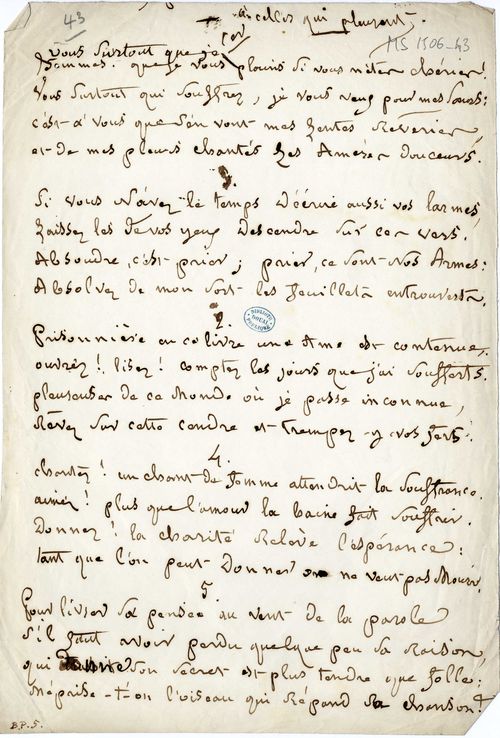 43
à celles qui pleurent.
MS 1506-43
Vous surtout que je
femmes! que je vous plains si vous n'êtes chéries!
Vous surtout qui souffrez, je vous veux pour mes sœurs:
c'est à vous que s'en vont mes lentes rêveries,
et de mes pleurs chantés les amères douceurs.
3.
Si vous n'avez le temps d'écrire aussi vos larmes,
laissez les de vos yeux descendre sur ces vers.
Absoudre, c'est prier; prier, ce sont nos armes:
Absolvez de mon sort les feuillets entrouverts.
2.
Prisonnière en ce livre une âme est contenue,
ouvrez! lisez! comptez les jours que j'ai soufferts.
pleureuses de ce monde où je passe inconnue,
Rêvez sur cette cendre et trempez-y vos fers!
4.
chantez! un chant de femme attendrit la souffrance.
aimez! plus que l'amour la haine fait souffrir.
Donnez! la charité relève l'espérance:
tant que l'on peut donner on ne veut pas mourir.
5.
Pour livrer sa pensée au vent de la parole
s'il faut avoir perdu quelque peu sa raison
qui son secret est plus tendre que folle:
méprise-t-on l'oiseau qui répand sa chanson?
B.P.5.